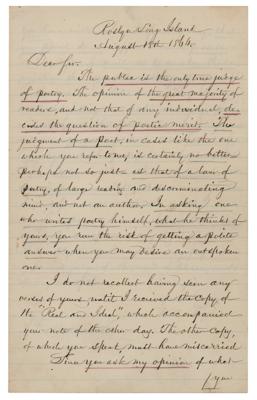 Roslyn Long Island
August 18th 1864.
Dear Sir.
The public is the only true judge
of poetry. The opinion of the great majority of
readers, and not that of any individual, de-
cides the question of poetic merit. The
judgment of a poet, in cases like the one
which you refer to me, is certainly no better
perhaps not so just as that of a lover of
poetry, of large reading and discriminating
mind, and not an author. In asking one
who writes poetry himself, what he thinks of
yours, you run the risk of getting a polite
answer when you may desire an outspoken
one.
I do not recollect having seen any
verses of yours until I received the copy, of
the "Real and Ideal", which accompanied
your note of the other day. The other copy,
of which you speak, must have miscarried
Since you ask my opinion of what
you